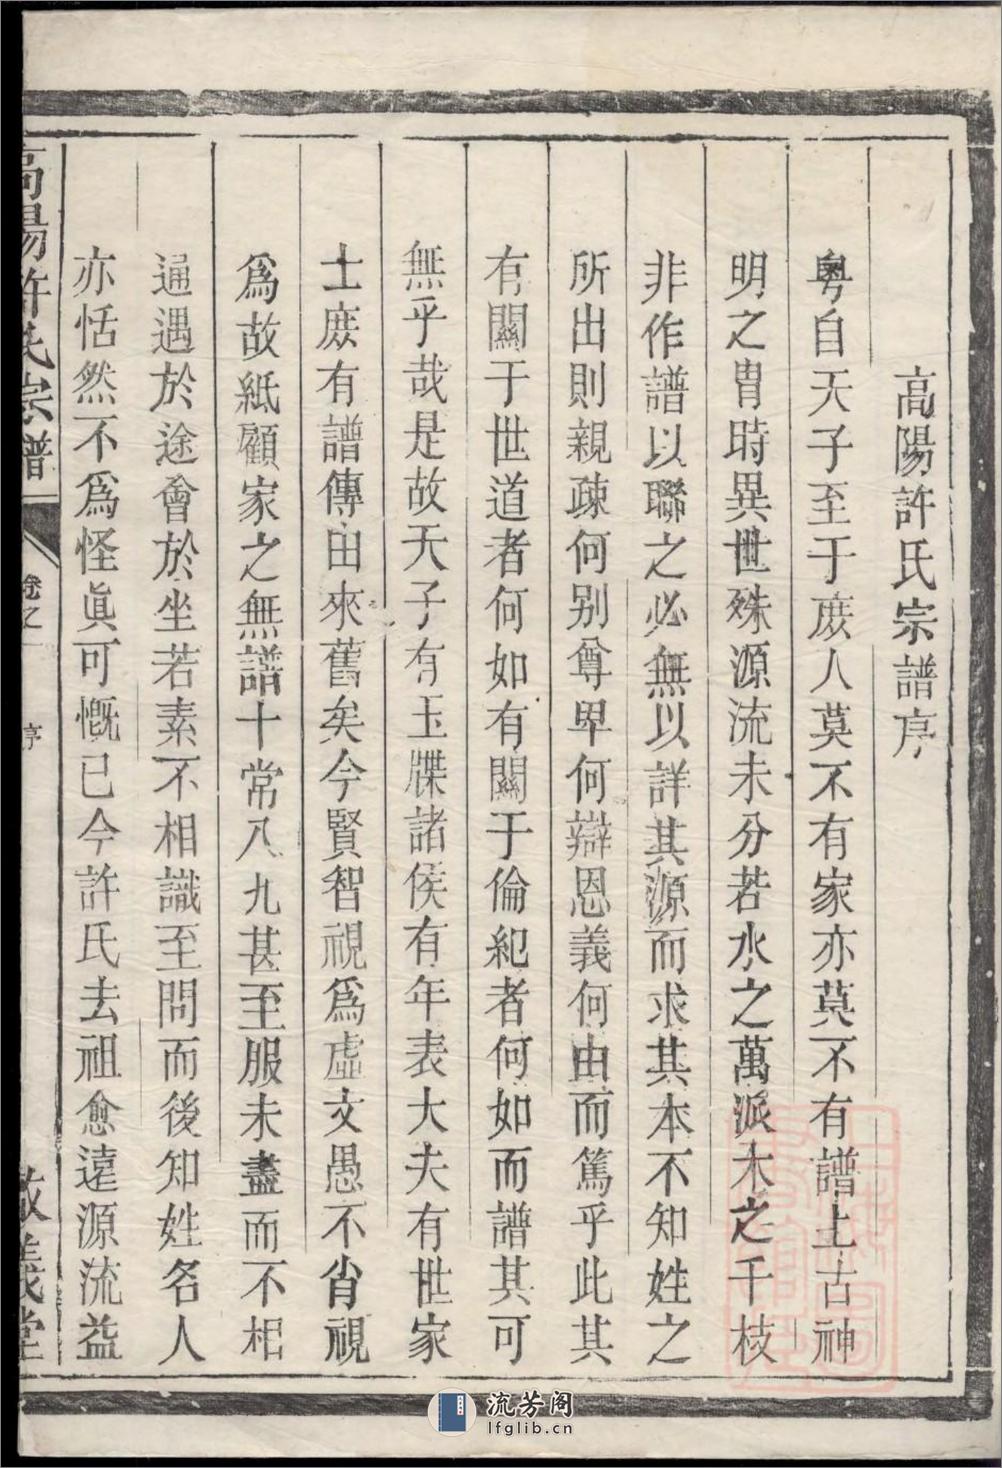 高陽許氏宗譜序
粵自天子至于庶人莫不有家亦莫不有譜上古神
明之胄時異世殊源流未分若水之萬派木之千枝
非作譜以聯之必無以詳其源而求其本不知姓之
所出則親疎何别尊卑何辯恩義何由而篤乎此其
有關于世道者何如有關于倫紀者何如而譜其可
無乎哉是故天子有玉牒諸侯有年表大夫有世家
士庶有譜傳由來舊矣今賢智視爲虛文愚不肖視
爲故紙顧家之無譜十常八九甚至服未盡而不相
通遇於途會於坐若素不相識至問而後知姓名人
亦恬然不爲怪眞可慨已今許氏去祖愈遠源流益
高陽許氏宗譜
卷之一
序
敦義堂
流芳阁
lfglib.cn